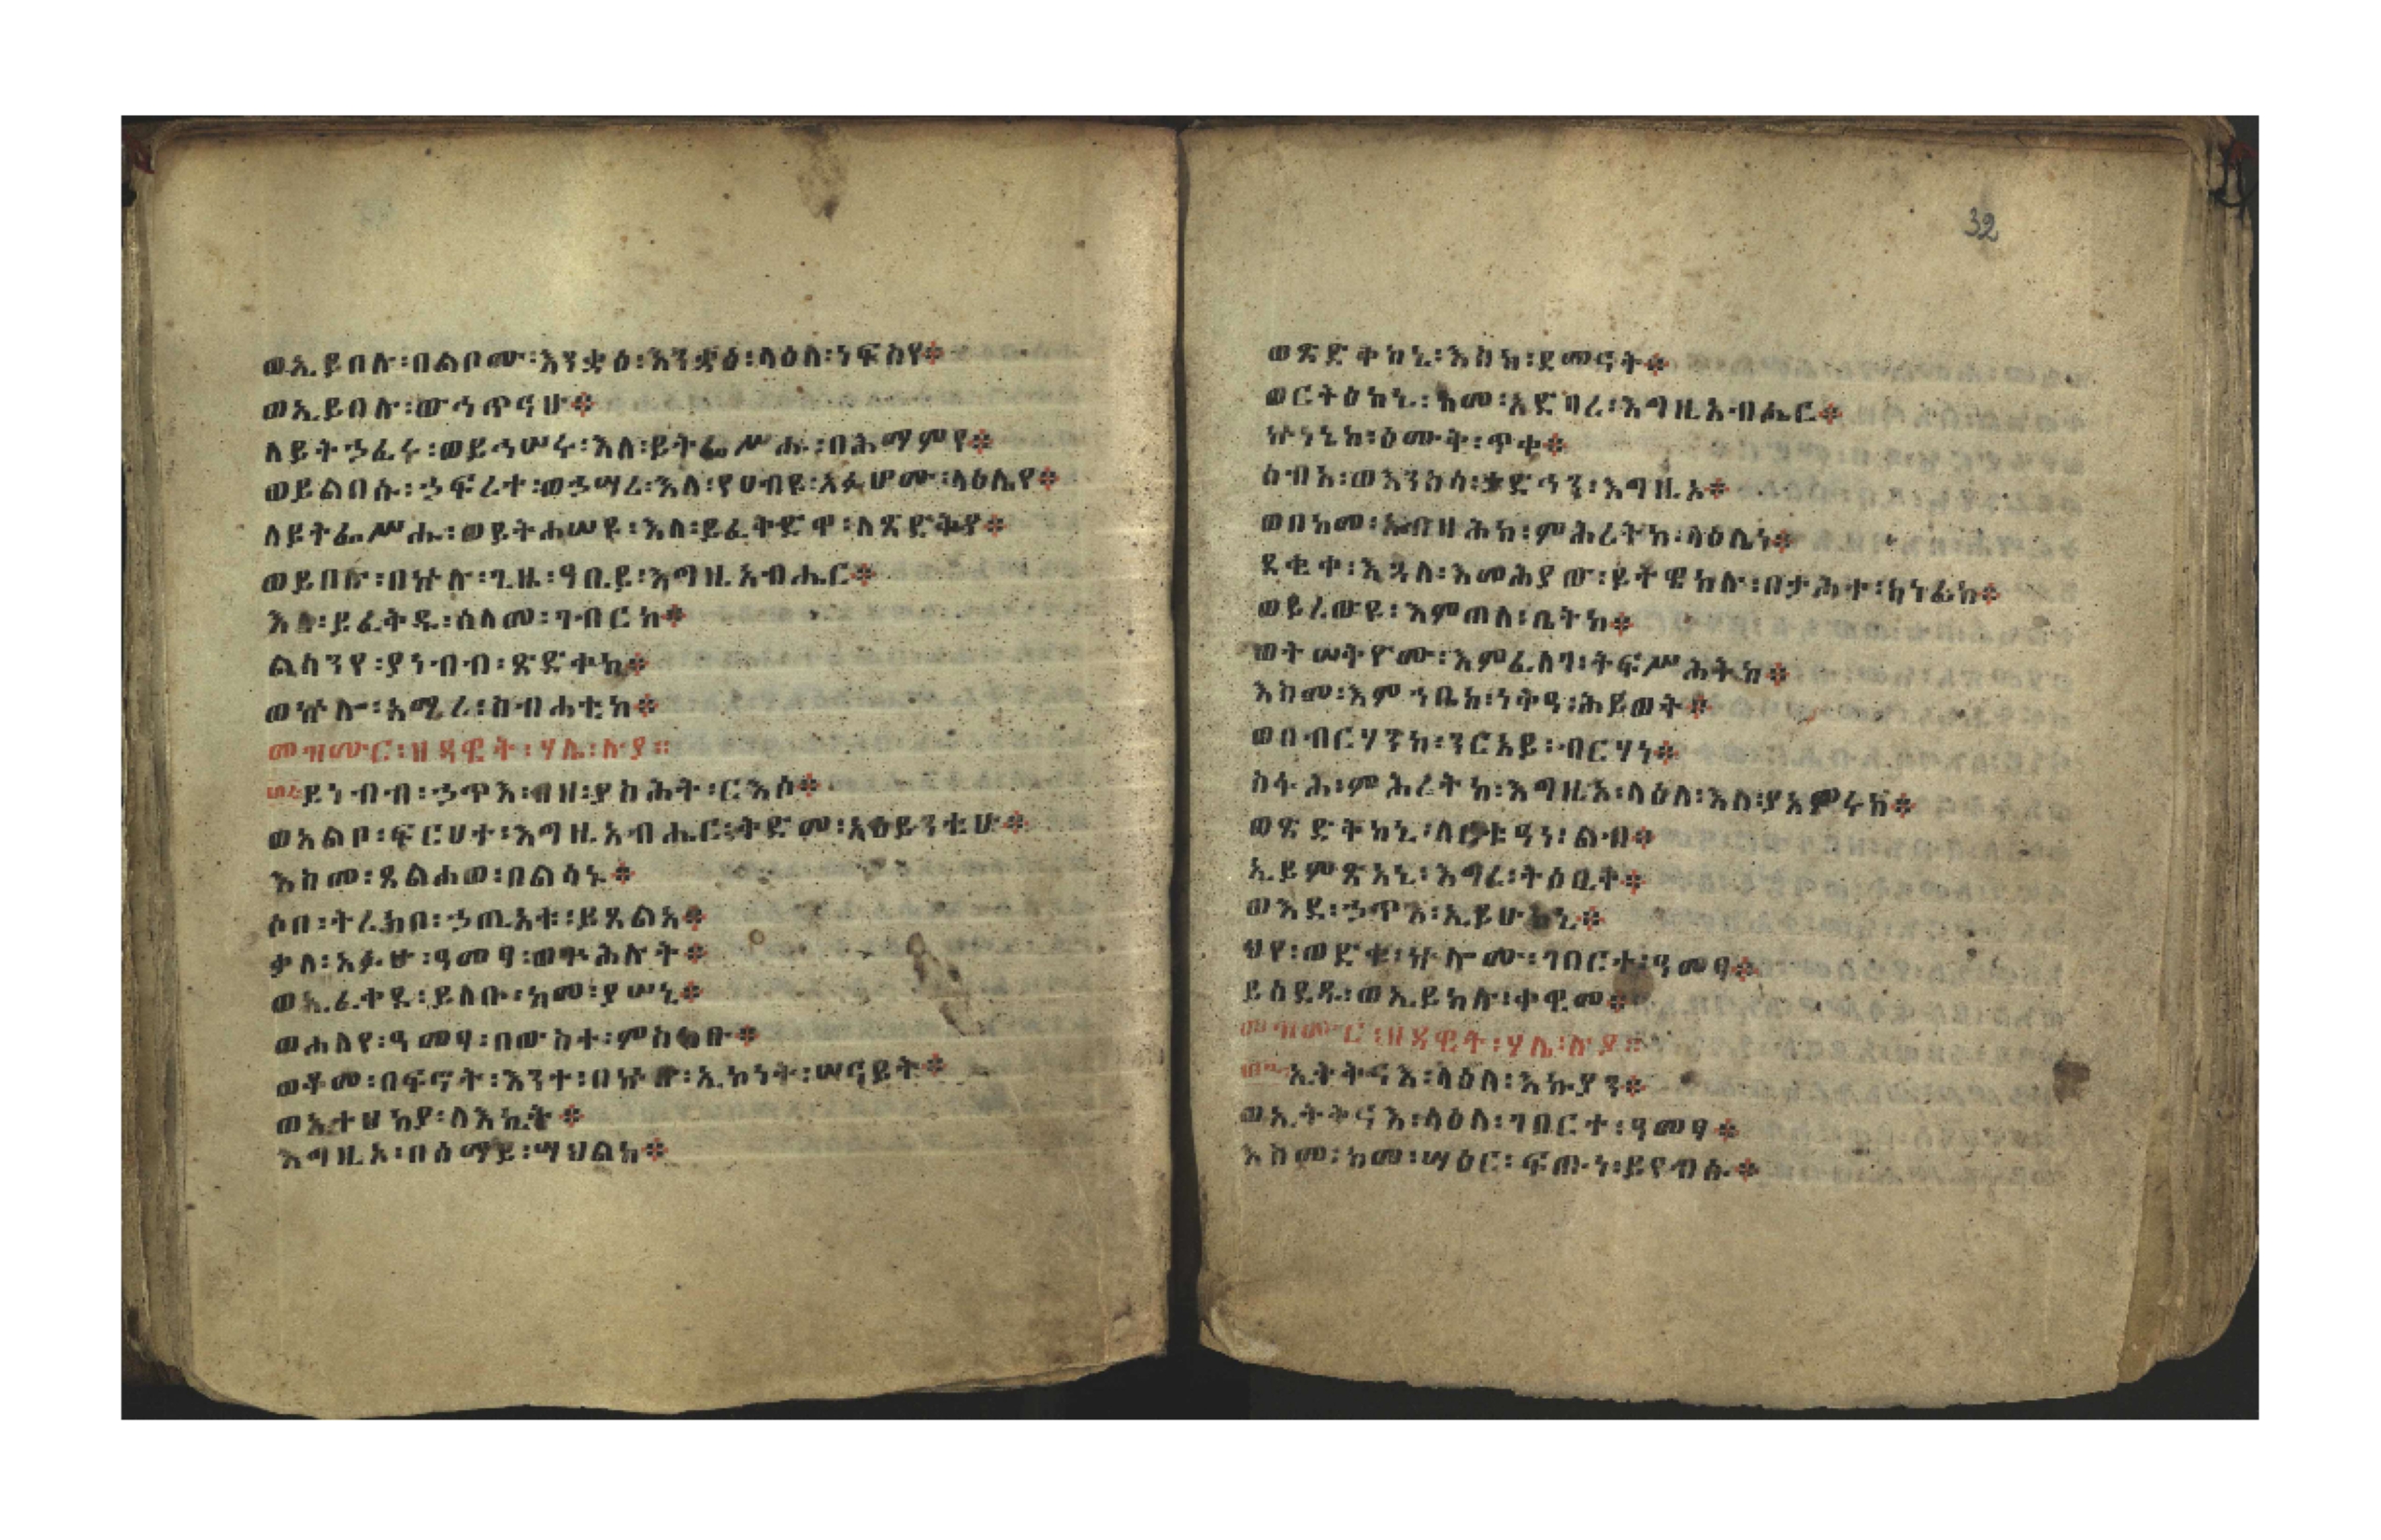 ወኢይበሉ፡በልቦሙ፡እንቋዕ፡እንቋዕ፡ላዕለ፡ነፍስየ።
ወኢይበሉ፡ውኅጥናሁ።
ለይትኃፈሩ፡ወይኅሥሩ፡እለ፡ይትፌሥሑ፡በሕማምየ።
ወይልበሱ፡ኃፍረተ፡ወኃሣረ፡እለ፡የሀብዩ፡አፉሆሙ፡ላዕሌየ።
ለይትፌሥሑ፡ወይትሐሠዩ፡እለ፡ይፈትድዋ፡ለጽድቅየ።
ወይበሉ፡በኵሉ፡ጊዜ፡ዓቢይ፡እግዚአብሔር።
እለ፡ይፈትዱ፡ሰላመ፡ገብርከ።
ልሳንየ፡ያነብብ፡ጽድቀከ።
ወኵሎ፡አሚረ፡ስብሐቲከ።
መዝሙር፡ዘዳዊት፡ሃሌ፡ሉያ።
ይነብብ፡ኃጥእ፡በዘ፡ያስሕት፡ርእሶ።
ወአልቦ፡ፍርሀተ፡እግዚአብሔር፡ቅድመ፡አዕይንቲሁ።
እስመ፡ጸልሐወ፡በልሳኑ።
ሶበ፡ትረክቦ፡ኃጢአቱ፡ይጸልእ።
ቃለ፡አፉሁ፡ዓመፃ፡ወጕሕሉት።
ወኢፈቀደ፡ይለቡ፡ከመ፡ያሠኒ።
ወሐለየ፡ዓመፃ፡በውስተ፡ምስካቡ።
ወቆመ፡በፍኖት፡እንተ፡በኵሉ፡ኢኮነት፡ሠናይት።
ወኢተሀከያ፡ለእኪት።
እግዚኦ፡በሰማይ፡ሣህልከ።
ወጽድቅከኒ፡እስከ፡ደመናት።
ወርትዕከኒ፡ከመ፡አድባረ፡እግዚአብሔር።
ኵነኔከ፡ዕሙቅ፡ጥቀ።
ሰብአ፡ወእንስሳ፡ታድኅን፡እግዚኦ።
ወበከመ፡አብዛሕከ፡ምሕረትከ፡ላዕሌነ።
ደቂቀ፡እጓለ፡እመሕያው፡ይትዌከሉ፡በታሕተ፡ክነፊከ።
ወይረውዩ፡እምጠለ፡ቤትከ።
ወትሠትዮሙ፡እምፈለገ፡ትፍሥሕትከ።
እስመ፡እምኀቤከ፡ነቅዓ፡ሕይወት።
ወበብርሃንከ፡ንርአይ፡ብርሃነ።
ስፋሕ፡ምሕረትከ፡እግዚኦ፡ላዕለ፡እለ፡ያአምሩከ።
ወጽድቅከኒ፡ለርቱዓነ፡ልብ።
ኢይምጽአኒ፡እግረ፡ትዕቢት።
ወእደ፡ኃጥእ፡ኢይሁከኒ።
ህየ፡ወድቁ፡ኵሎሙ፡ገበርተ፡ዓመፃ።
ይሰደዱ፡ወኢይክሉ፡ቀዊመ።
መዝሙር፡ዘዳዊት፡ሃሌ፡ሉያ።
ኢትቅናእ፡ላዕለ፡እኩያን።
ወኢትቅናእ፡ላዕለ፡ገበርተ፡ዓመፃ።
እስመ፡ከመ፡ሣዕር፡ፍጡነ፡ይየብሱ።
32